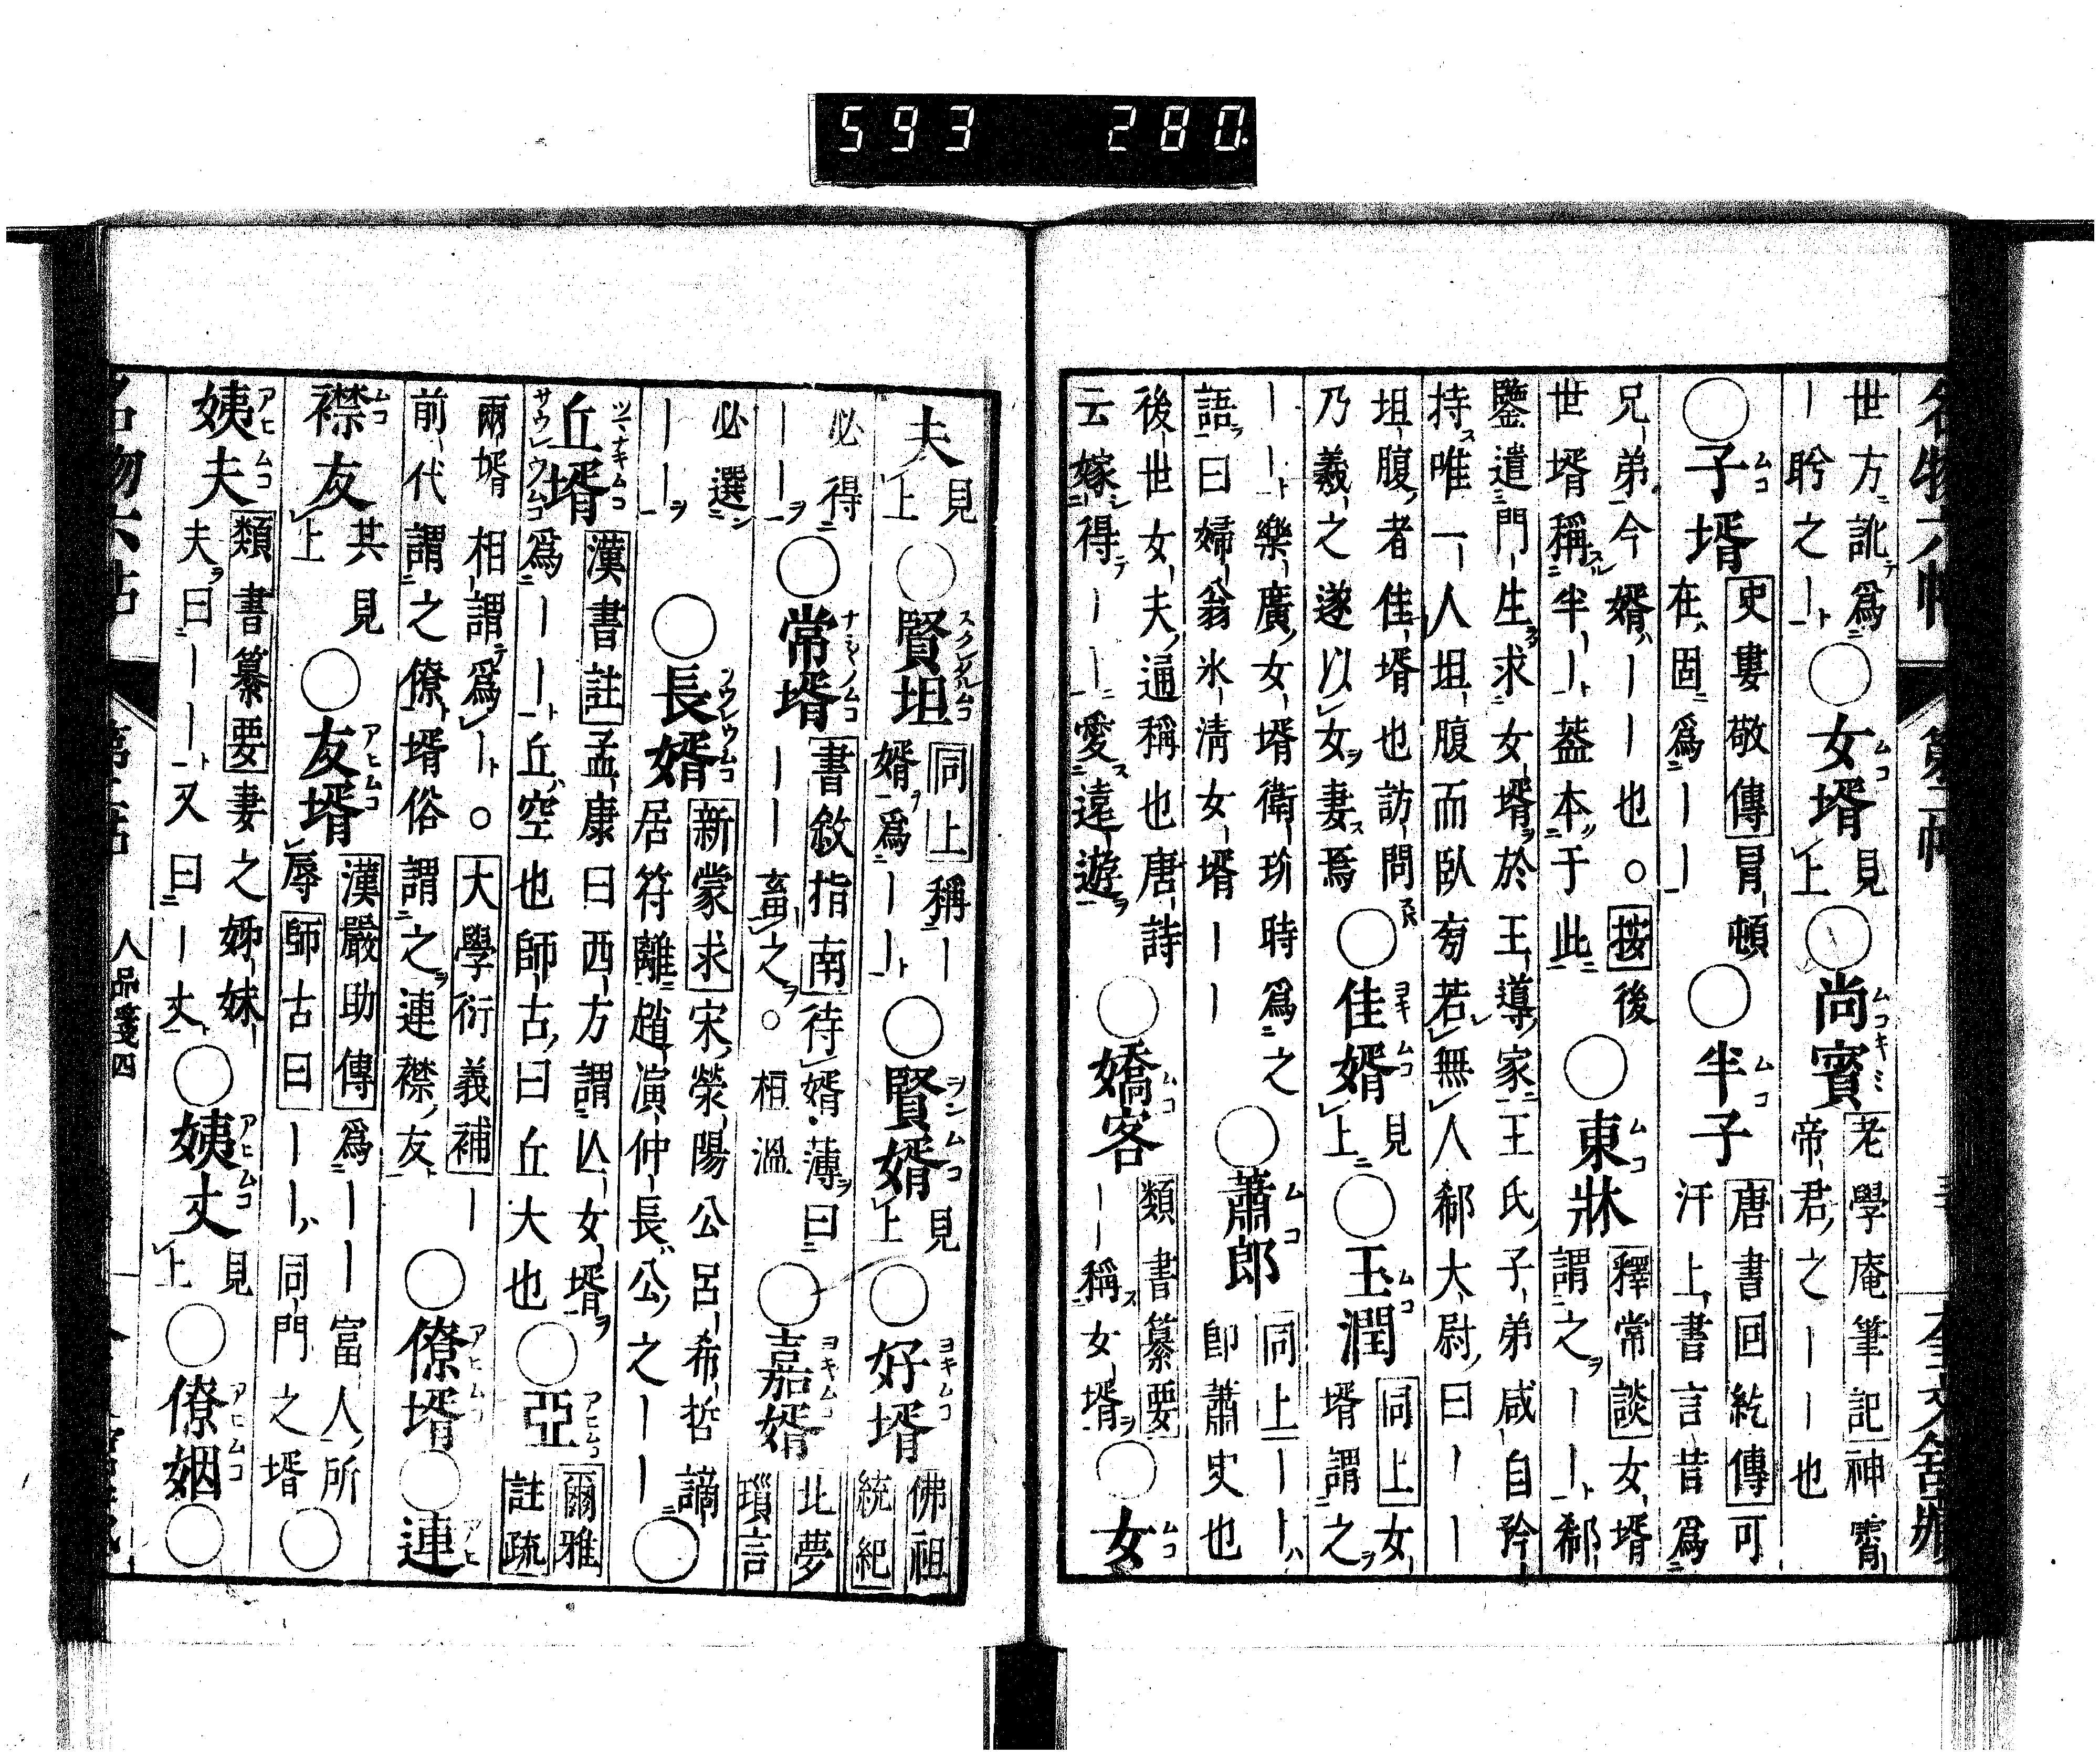 593 280
世方訛爲
｜聆之｜
○女壻 見上
○尚賓 老學庵筆記神霄
帝君之｜｜也
○子壻 史婁敬傳冒頓
在固爲｜｜
○半子 唐書回紇傳可
汗上書言昔爲
兄弟今婿｜｜也。按後
世壻稱半｜葢本于此
○東牀 釋常談女壻
謂之｜｜郗
鑒遣門生求女壻於王導家王氏子弟咸自矜
持唯一人坦腹而臥旁若無人郗大尉曰｜｜
坦腹者佳壻也訪問
乃羲之遂以女妻焉
○佳婿 見上
○玉潤 同上女
壻謂之
｜｜樂廣女壻衛玠時爲之
語曰婦翁氷清女壻｜｜
○蕭郎 同上｜｜
卽蕭史也
後世女夫通稱也唐詩
云嫁得｜｜愛遠遊
○嬌客 類書纂要
｜｜稱女壻
○女
夫 見上
○賢坦 同上稱｜
婿爲｜｜
○賢婿 見上
○好壻 佛祖
統紀
必得
｜｜
○常壻 書敘指南待婿薄曰
｜｜｜畜之。桓溫
○嘉婿 北夢
瑣言
必選
｜｜
○長婿 新蒙求宋滎陽公呂希哲謫
居符離趙演仲長公之｜｜
○
丘壻 漢書註孟康曰西方謂亾女壻
爲｜｜丘空也師古曰丘大也
○亞 爾雅
註疏
兩壻相謂爲｜。大學衍義補｜
前代謂之僚壻俗謂之連襟友
○僚壻
○連
襟友 共見上
○友壻 漢嚴助傳爲｜｜富人所
辱師古曰｜｜同門之壻
○
姨夫 類書纂要妻之姊妹
夫曰｜｜又曰｜丈
○姨丈 見上
○僚姻
○
名物六帖 人品箋四